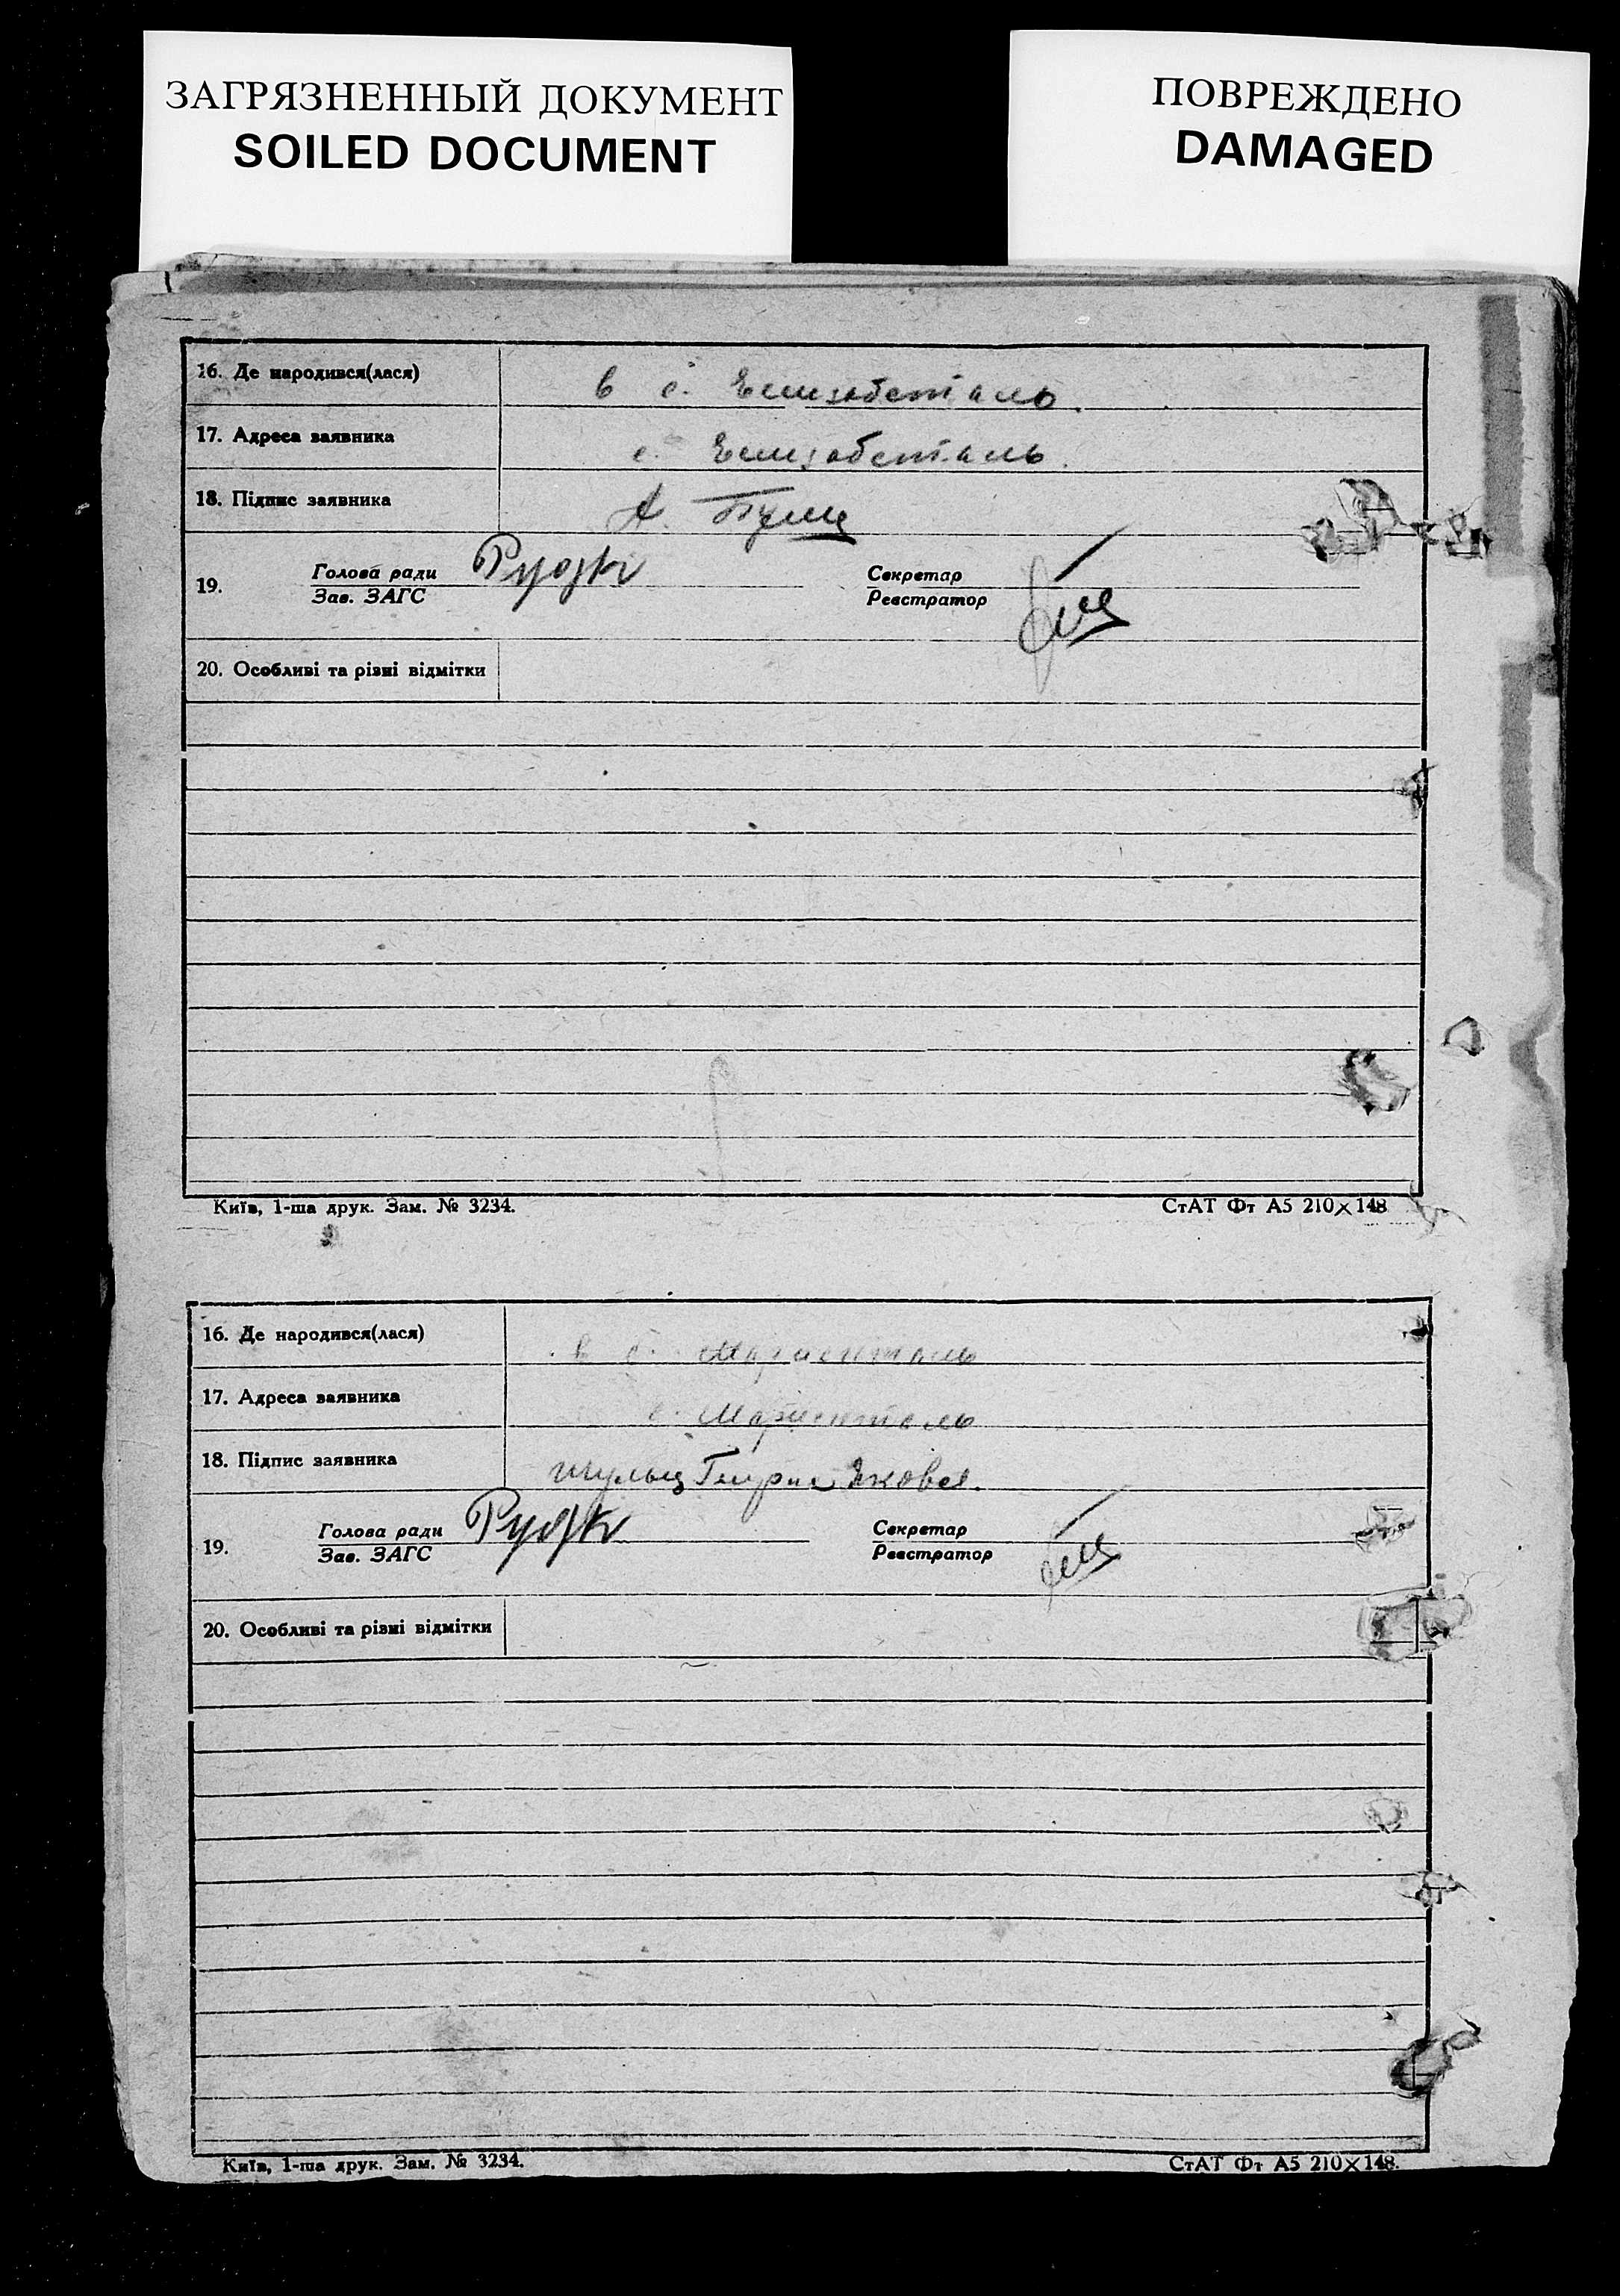 ЗАГРЯЗНЕННЫЙ ДОКУМЕНТ
SOILED DOCUMENT
ПОВРЕЖДЕНО
DAMAGED
16. Де народився(лася) в с. Елизабеталь.
17. Адреса заявника с. Елизабеталь.
18. Підпис заявника А.
19. Голова ради
Зав. ЗАГС
Секретар
Реєстратор
20. Особливі та різні відмітки
Київ, 1-ша друк. Зам. № 3234.
СтАТ Фт А5 210×148
16. Де народився(лася) в с. Мариенталь
17. Адреса заявника с. Мариенталь
18. Підпис заявника Шульц
19. Голова ради
Зав. ЗАГС
Секретар
Реєстратор
20. Особливі та різні відмітки
Київ, 1-ша друк. Зам. № 3234.
СтАТ Фт А5 210×148.